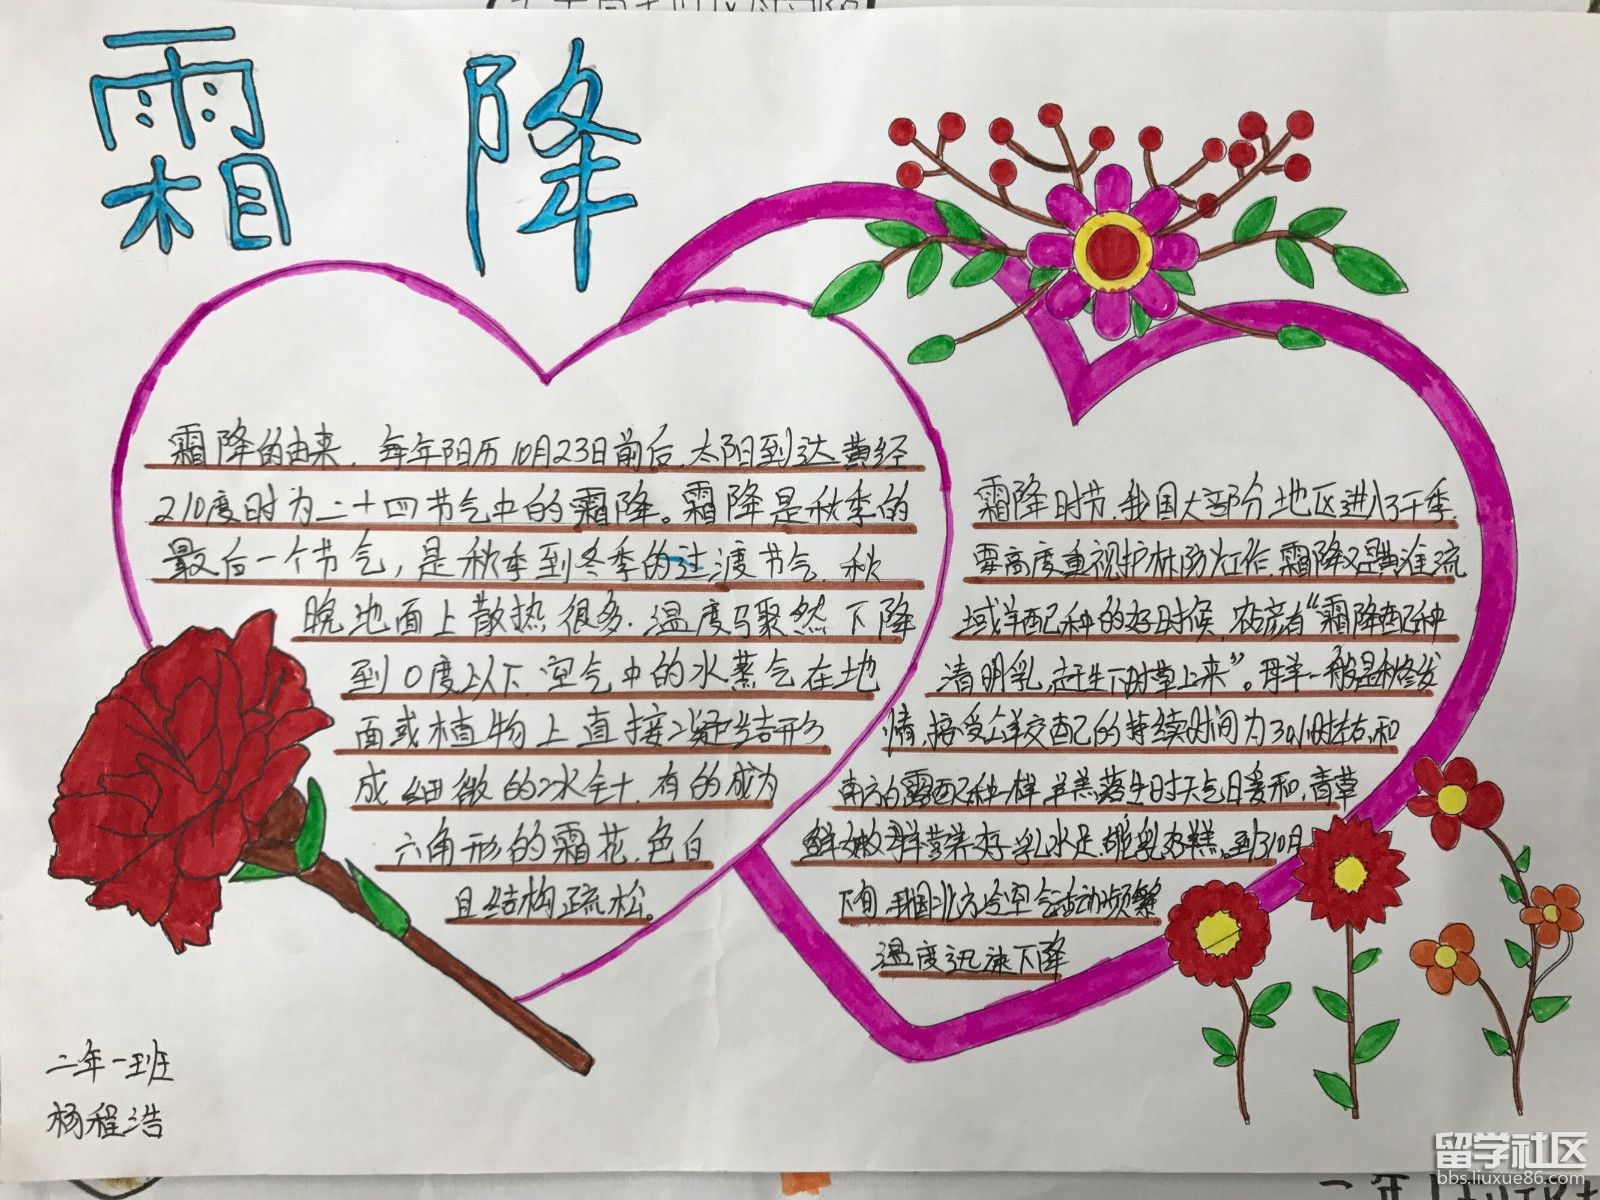 霜 降
霜降的由来.每年阳历10月23日前后.太阳到达黄经
210度时为二十四节气中的霜降。霜降是秋季的
最后一个节气,是秋季到冬季的过渡节气.秋
晚地面上散热很多.温度骤然下降
到0度以下.空气中的水蒸气在地
面或植物上直接凝结形
成细微的冰针.有的成为
六角形的霜花.色白
且结构疏松。
霜降时节.我国大部分地区进入了干季.
要高度重视护林防火工作.霜降又是黄淮流
域羊配种的好时候,农彦有“霜降配种
清明乳,赶生下时草上来”。母羊一般是秋冬发
情,接受公羊交配的持续时间为30小时左右,和
南方的露配种一样羊羔落生时天气日暖和,青草
鲜嫩,母羊营养好,乳水足,哺乳好羔。到了10月
下旬,我国北方冷空气活动频繁
温度迅速下降
二年一班
杨程浩
留学社区
bbs.liuxue86.com